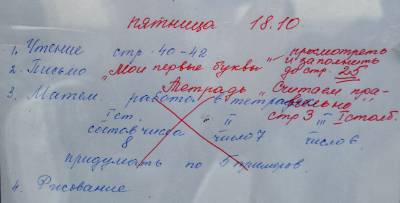 пятница 18.10.
1. Чтение стр. 40-42
просмотреть
2. Письмо „Мои первые буквы" и заполнить
до стр. 25
Тетрадь „Считаем пра-
3. Матем. работа в тетрадях
вильно"
стр 3 I столб.
I ст. II III
состав числа число 7 число 6
8
придумать по 5 примеров.
4. Рисование